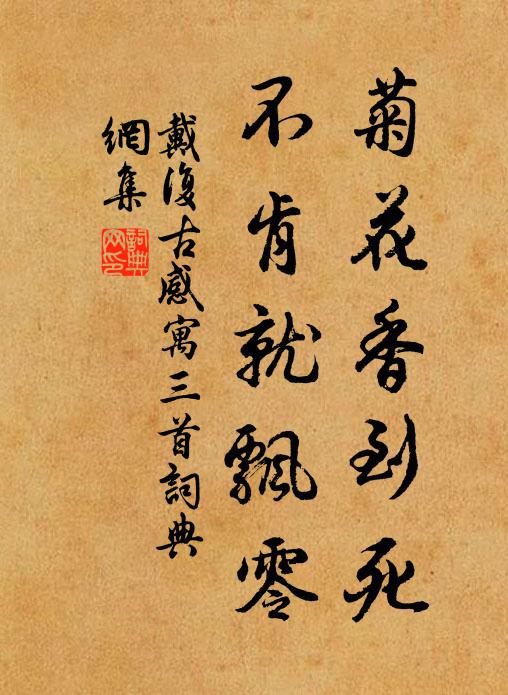 菊花香到死
不肯就飄零
戴復古感寓三首詞典
網集
詞典
网印